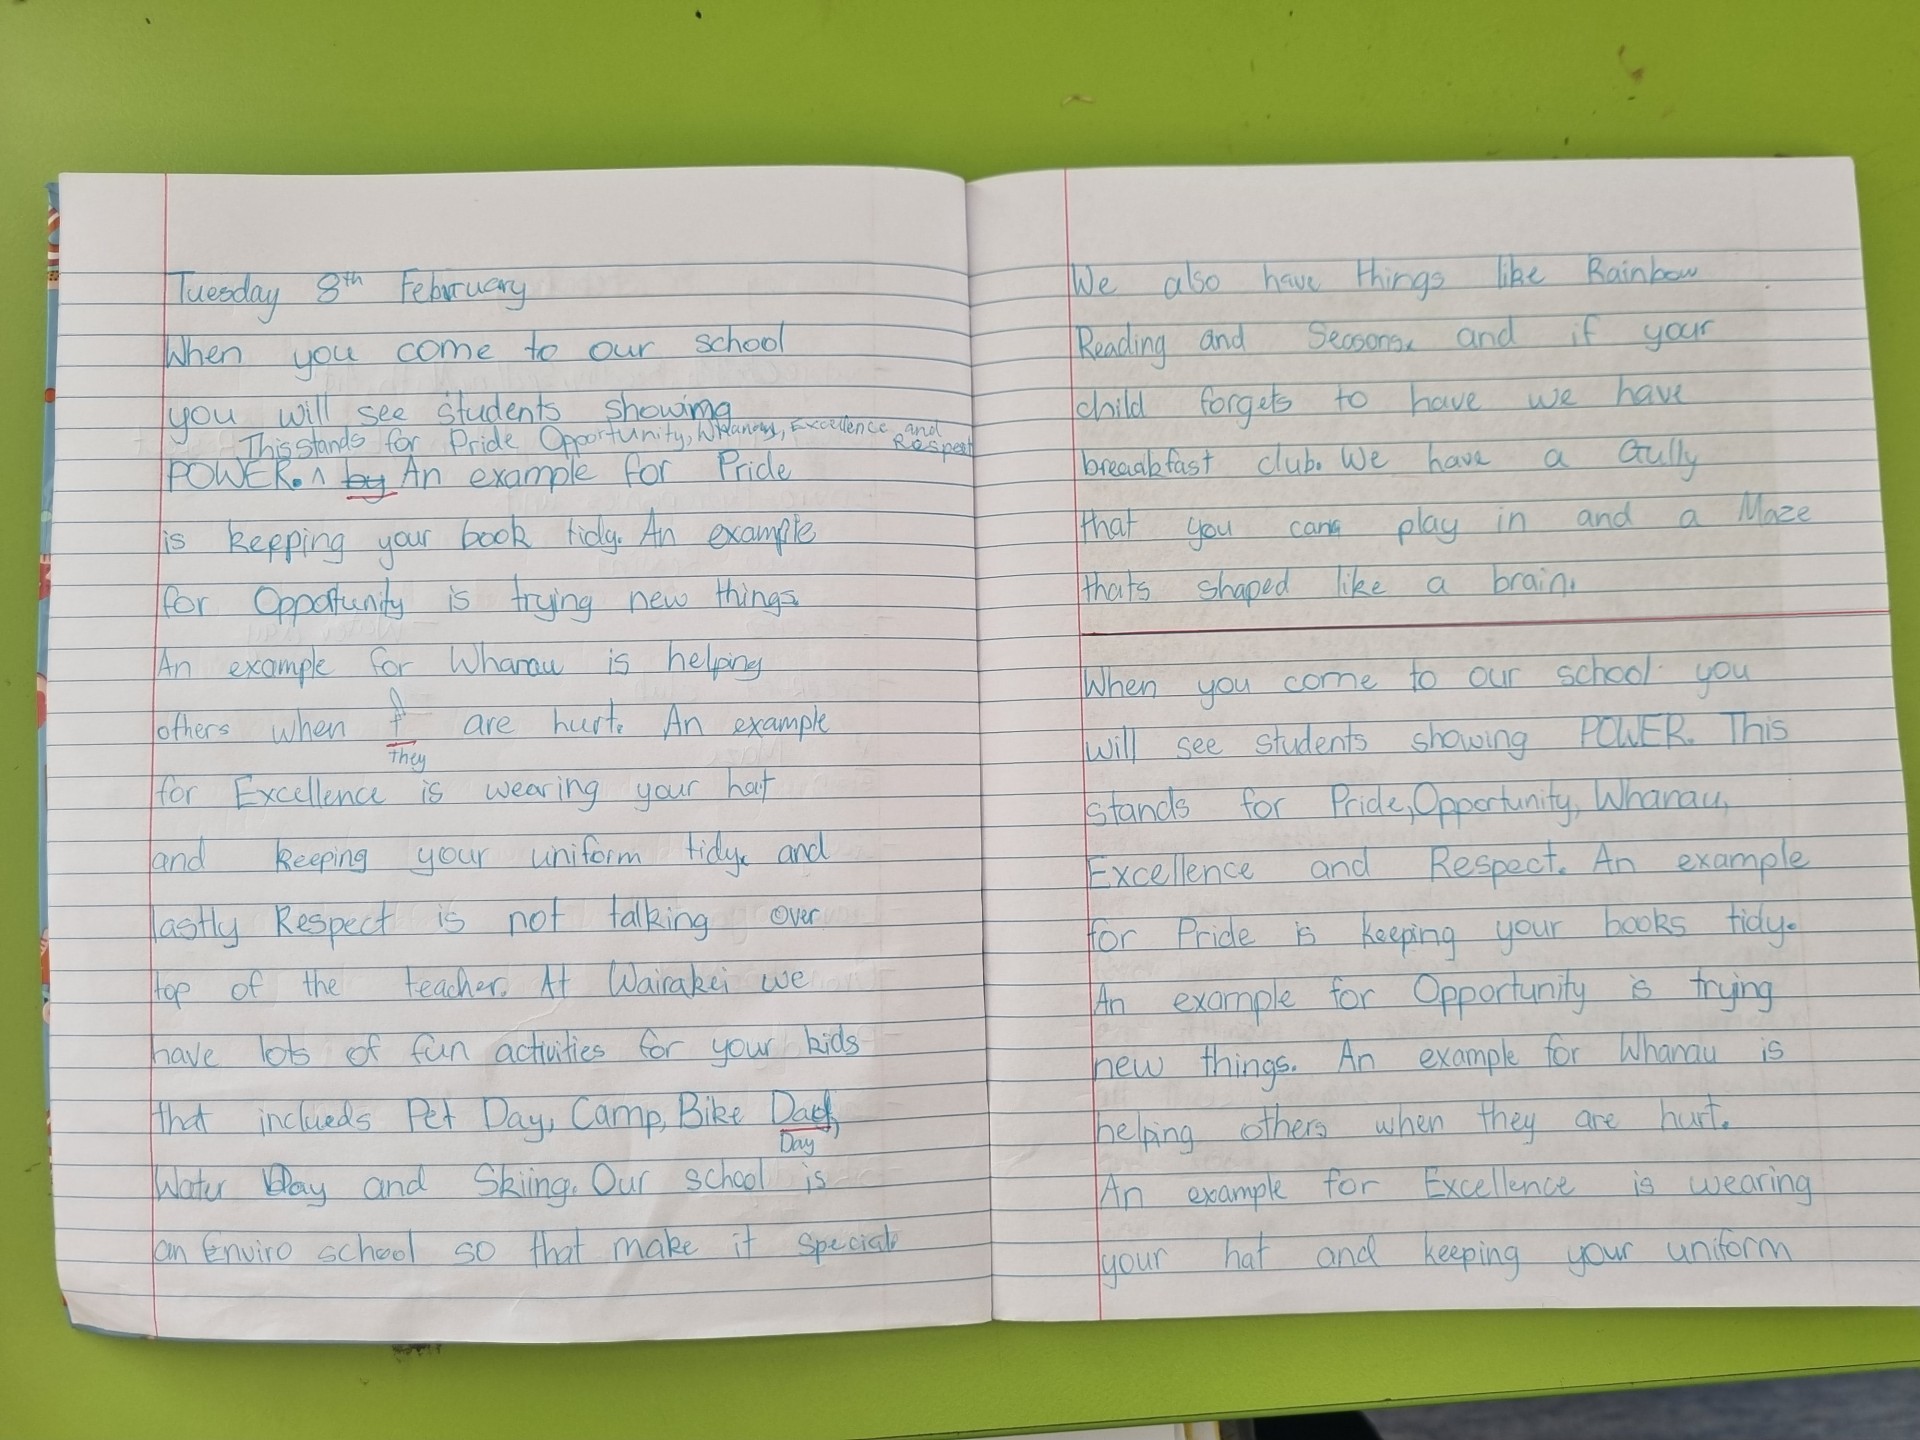 Tuesday 8th February
When you come to our school
you will see students showing
This stands for Pride Opportunity, Whanau, Excellence and
Respect
POWER. ^ by An example for Pride
is keeping your book tidy. An example
for Oppotunity is trying new things.
An example for Whanau is helping
others when f are hurt. An example
They
for Excellence is wearing your hat
and keeping your uniform tidy. and
lastly Respect is not talking over
top of the teacher. At Wairakei we
have lots of fun activities for your kids
that inclueds Pet Day, Camp, Bike Dad,
Day
Water Day and Skiing. Our school is
an Enviro school so that make it special
We also have things like Rainbow
Reading and Seosons. and if your
child forgets to have we have
breaakfast club. We have a Gully
that you cana play in and a Maze
thats shaped like a brain.
When you come to our school you
will see students showing POWER. This
stands for Pride, Opportunity, Whanau,
Excellence and Respect. An example
for Pride is keeping your books tidy.
An example for Opportunity is trying
new things. An example for Whanau is
helping others when they are hurt.
An example for Excellence is wearing
your hat and keeping your uniform